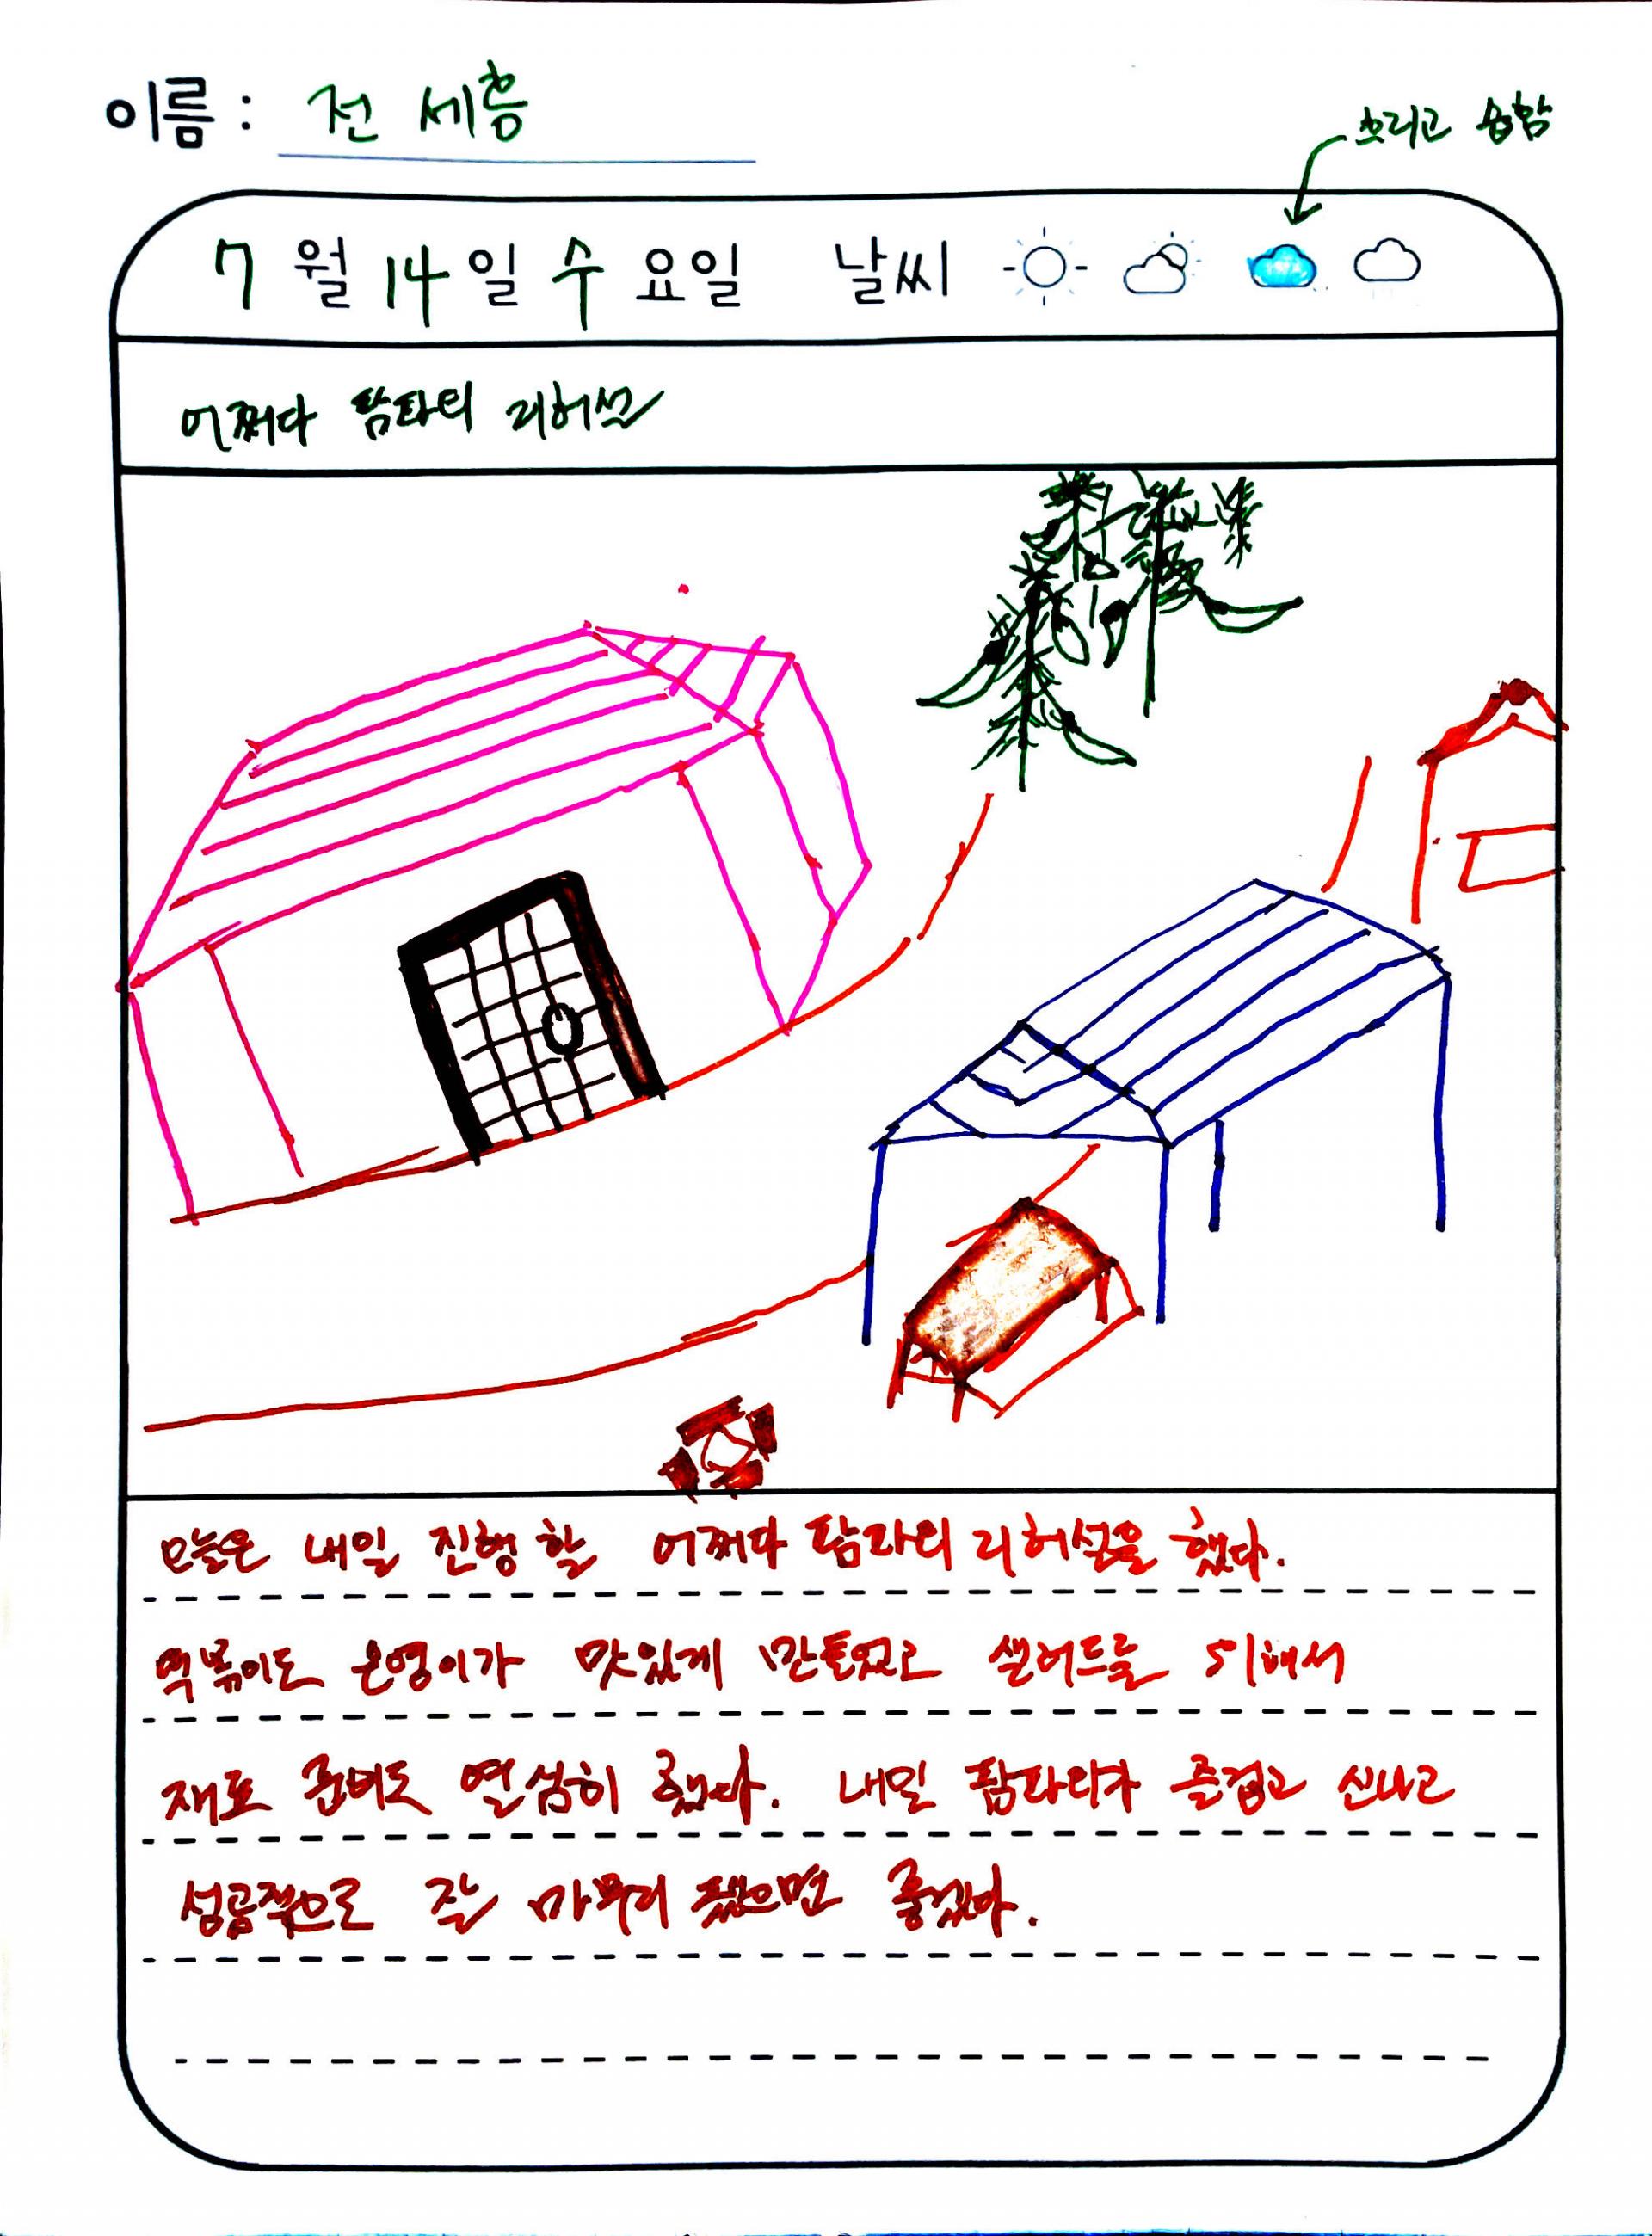 이름: 전 세흠
흐리고 습함
7월 14일 수요일 날씨
어쩌다 팜파티 리허설
오늘은 내일 진행할 어쩌다 팜파티 리허설을 했다.
떡볶이도 은영이가 맛있게 만들었고 샐러드를 위해서
재료 준비도 열심히 했다. 내일 팜파티가 즐겁고 신나고
성공적으로 잘 마무리 됐으면 좋겠다.